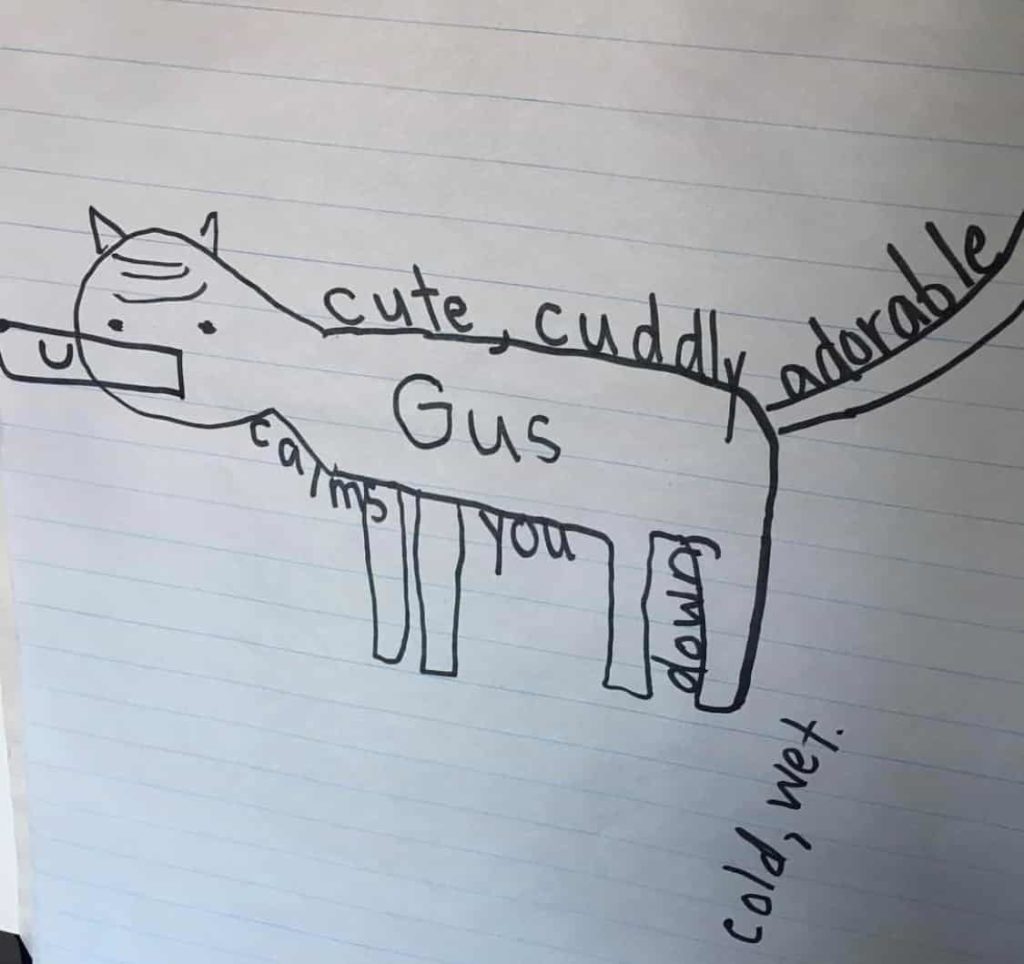 cute, cuddly
adorable
Gus
calms
you
down
cold, wet.